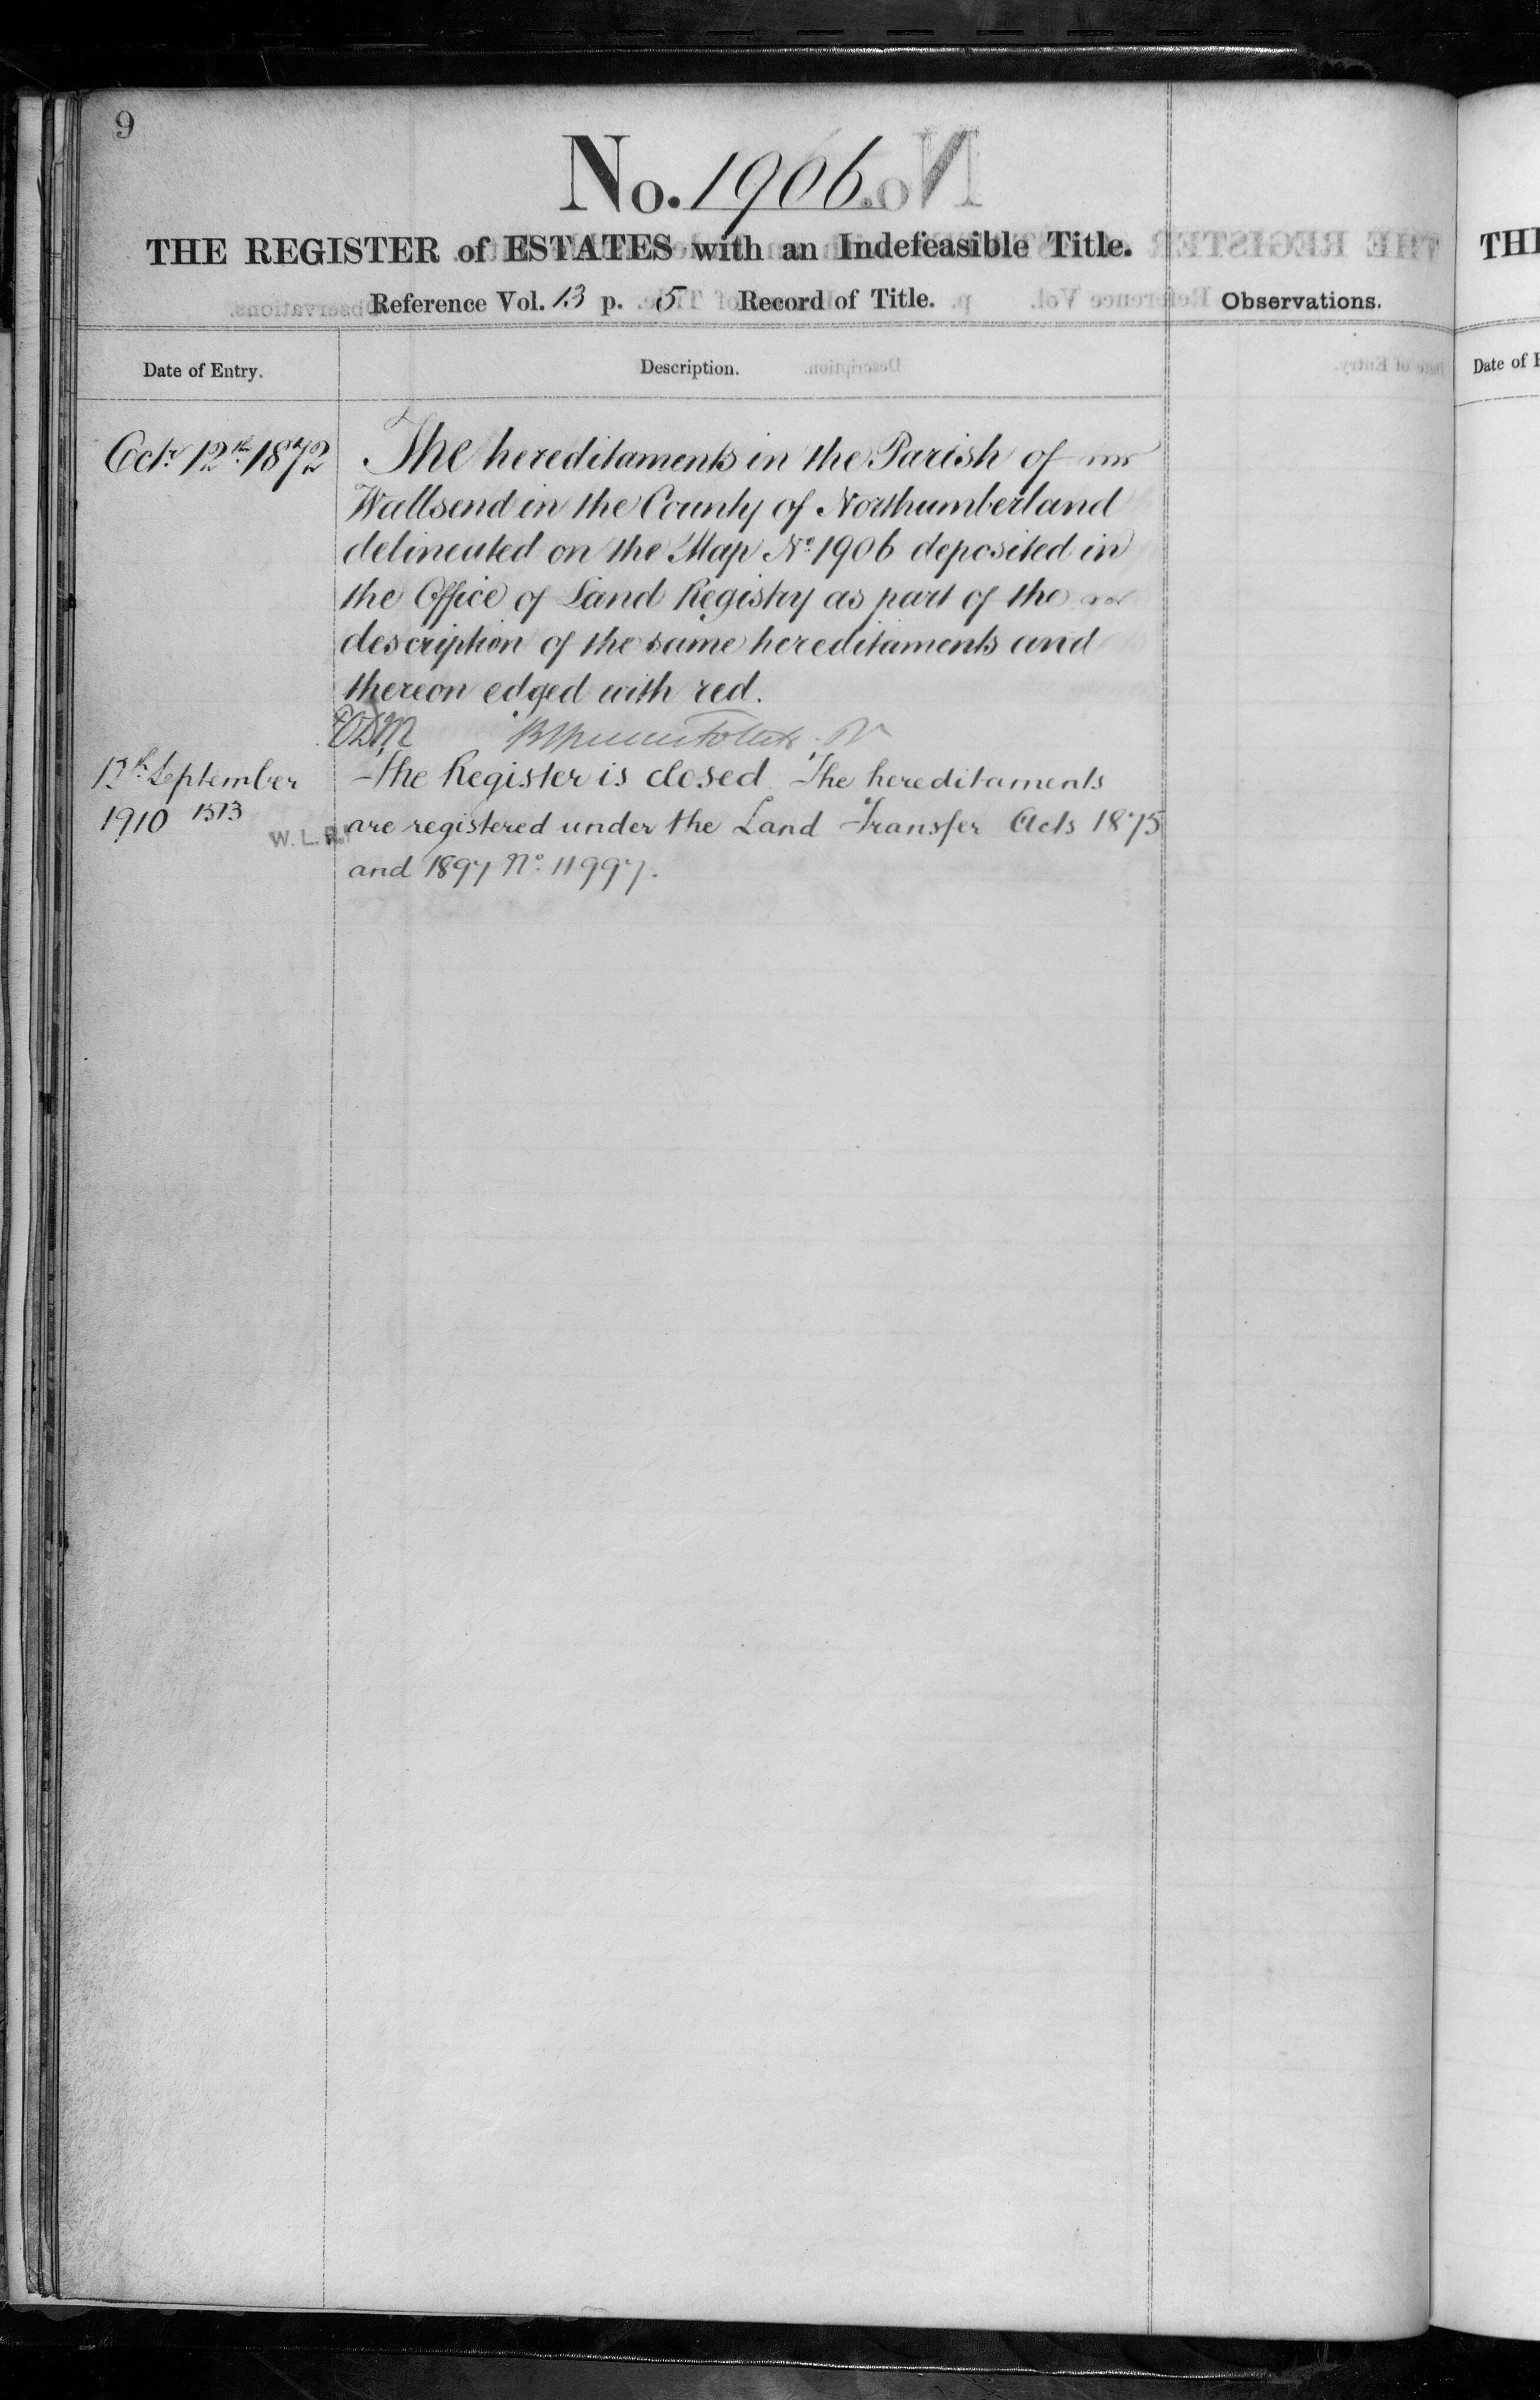 9
No. 1906.
THE REGISTER of ESTATES with an Indefeasible Title.
Reference Vol. 13 p. 5 Record of Title.
Observations.
Date of Entry.
Description.
Octr. 12th. 1872
The hereditaments in the Parish of
Wallsend in the County of Northumberland
delineated on the Map No. 1906 deposited in
the Office of Land Registry as part of the
description of the same hereditaments and
thereon edged with red.
September
1910 1513
W. L. R.
The Register is closed. The hereditaments
are registered under the Land Transfer Acts 1875
and 1897 No. 11997.
THE
Date of E